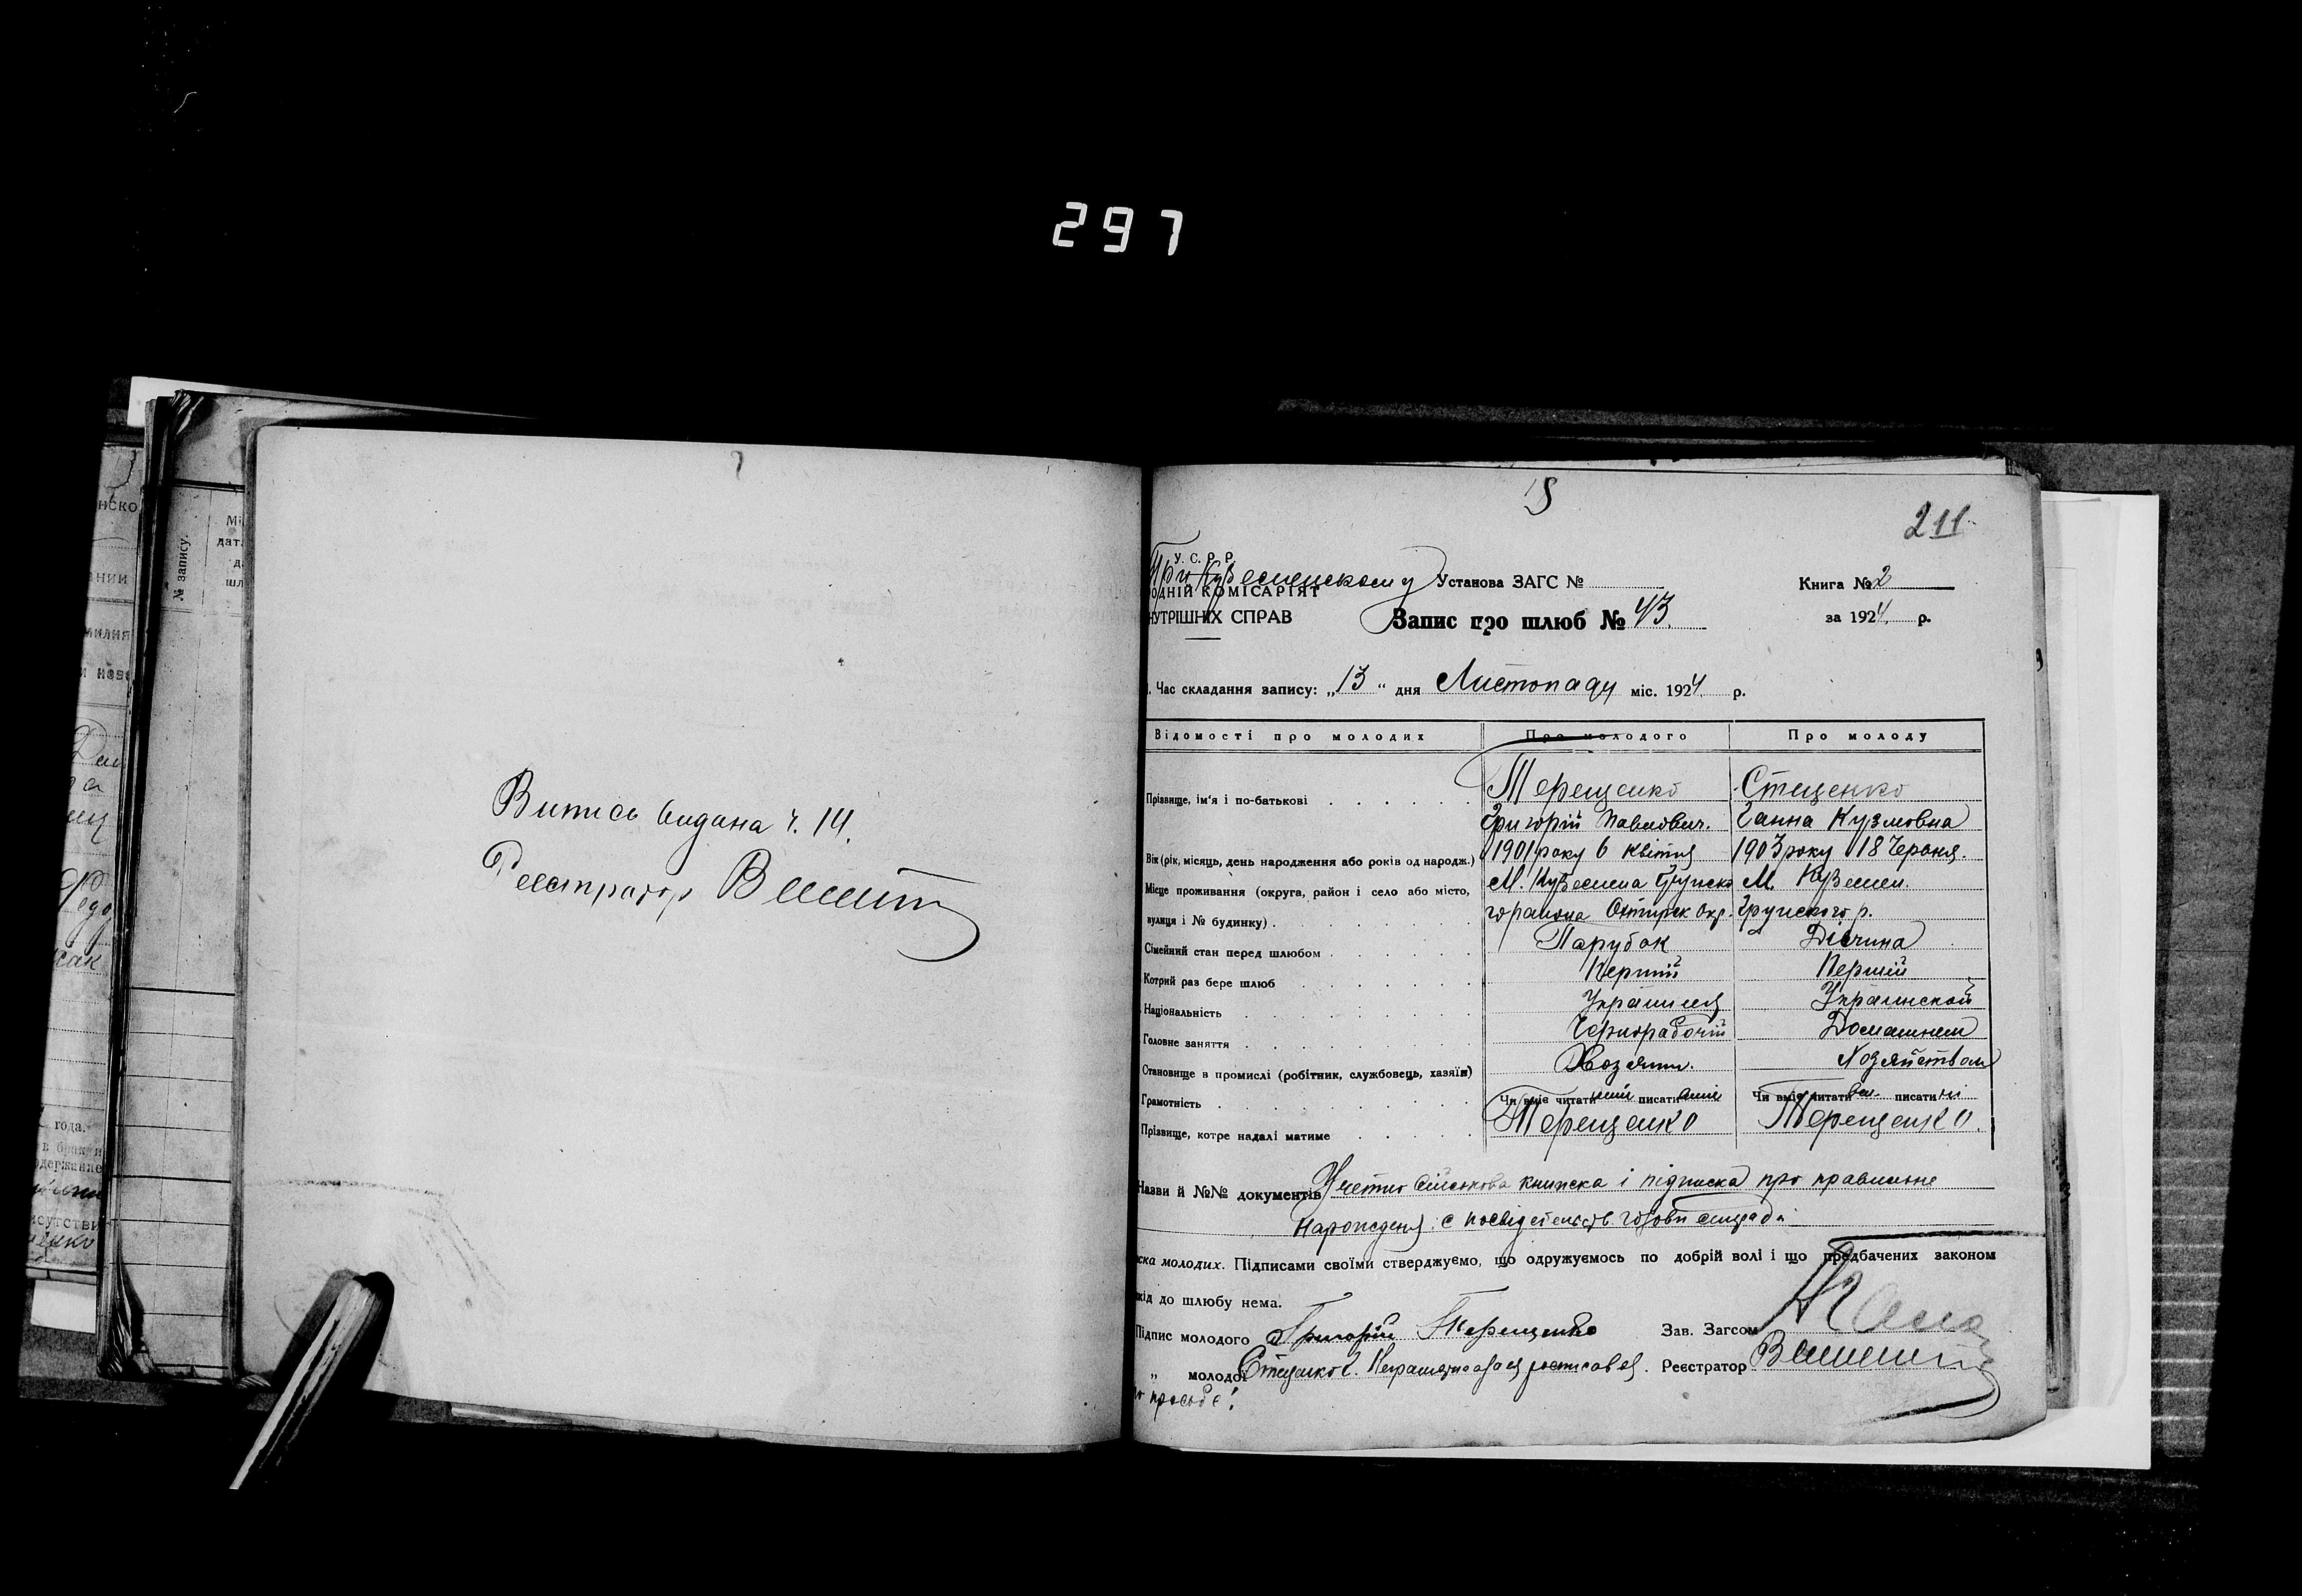 297
Випись видана ч. 14.
Реєстратор
211
У. С. Р. Р.
При Куземенському Установа ЗАГС № Книга № 2
ОДНІЙ КОМІСАРІЯТ
НУТРІШНІХ СПРАВ Запис про шлюб № 43. за 1924 р.
Час складання запису: „13“ дня Листопаду міс. 1924 р.
Відомості про молодих Про молодого Про молоду
Прізвище, ім'я і по-батькові Терещенко Стеценко
Григорій Павлович. Ганна Кузмовна
Вік (рік, місяць, день народження або років од народж.) 1901 року 6 квітня 1903 року 18 Червня.
Місце проживання (округа, район і село або місто, М. Куземена Грунсько М. Куземен.
вулиця і № будинку) горайона Охтирск окр. Грунского р.
Сімейний стан перед шлюбом Парубок Дівчина
Котрий раз бере шлюб Перший Перший
Національність Українця Украинской
Головне заняття Чорнорабочій Домашнем
Становище в промислі (робітник, службовець, хазяїн) Хозяин. Хозяйством
Грамотність Чи вміє читати писати Чи вміє читати писати ні
Прізвище, котре надалі матиме Терещенко Терещенко.
Назви й №№ документів Учетно військова книжка і підписка про правильне
народженя с посвідетельств. голови сільради
ска молодих. Підписами своїми стверджуємо, що одружуємось по добрій волі і що предбачених законом
кід до шлюбу нема.
Підпис молодого Григорій Терещенко Зав. Загсом
„ молодої Стеценко Г. Реєстратор
просьбе!
№ запису.
года.